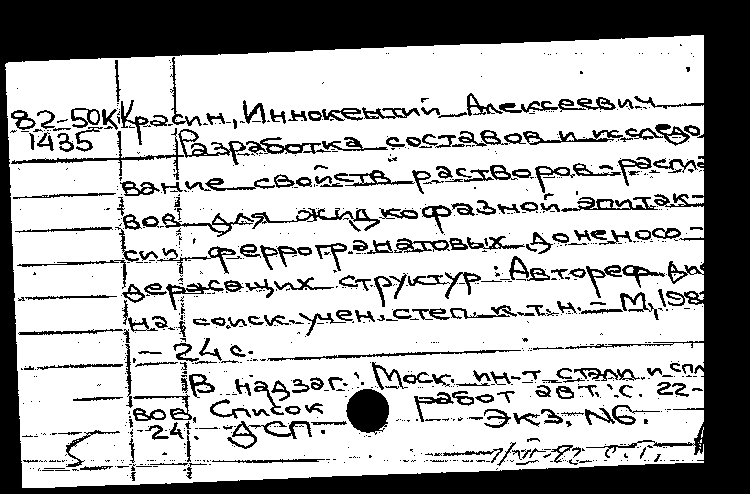 82-50К Красин, Иннокентий Алексеевич
1435 Разработка составов и исследо
вание свойств растворов-распла
вов для жидкофазной эпитак-
сии феррогранатовых доменосо-
держащих структур : Автореф. дис
на соиск. учен. степ. к. т. н. – М, 198
– 24 с.
В надзаг.: Моск. ин-т стали и спл
вов. Список работ авт.: с. 22-
24. ДСП. Экз. N6.
5